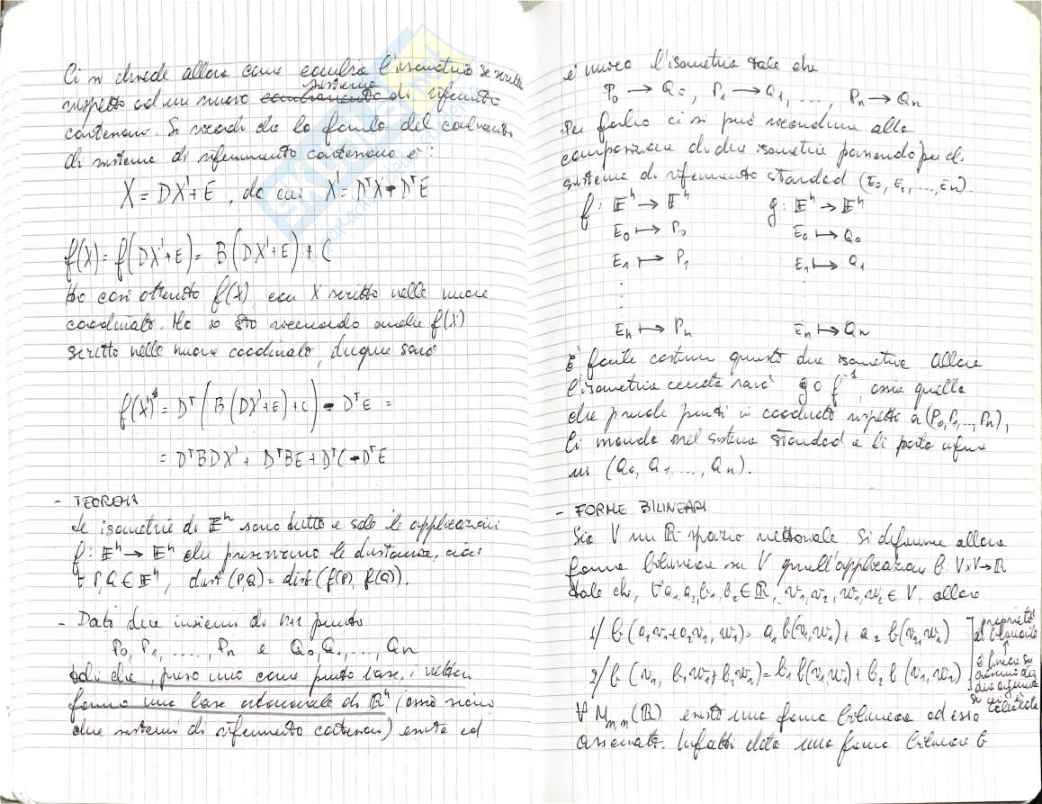 Ci si chiede allora come cambia l'isometria se scritta
sistema
rispetto ad un nuovo cambiamento di riferimento
cartesiano. Si ricordi che la formula del cambiamento
di sistema di riferimento cartesiano è:
X = DX' + E, da cui X' = DᵀX - DᵀE
f(X) = f(DX'+E) = B(DX'+E) + C
Ho così ottenuto f(X) con X scritto nelle nuove
coordinate. Ma io sto cercando anche f(X)
scritto nelle nuove coordinate, dunque sarà
f(X)' = Dᵀ(B(DX'+E)+C) - DᵀE =
= DᵀBDX' + DᵀBE + DᵀC - DᵀE
- TEOREMA
Le isometrie di 𝔼ⁿ sono tutte e sole le applicazioni
f: 𝔼ⁿ → 𝔼ⁿ che preservano le distanze, cioè
∀ P,Q ∈ 𝔼ⁿ, dist(P,Q) = dist(f(P), f(Q)).
- Dati due insiemi di n+1 punti
P₀, P₁, ....., Pₙ e Q₀, Q₁, ..., Qₙ
tali che, preso uno come punto base, i vettori
formano una base ortonormale di ℝⁿ (cioè siano
due sistemi di riferimento cartesiani) esiste ed
è unica l'isometria tale che
P₀ → Q₀, P₁ → Q₁, ...., Pₙ → Qₙ
Per farlo ci si può ricondurre alla
composizione di due isometrie passando per il
sistema di riferimento standard (E₀, E₁, ..., Eₙ).
f: 𝔼ⁿ → 𝔼ⁿ g: 𝔼ⁿ → 𝔼ⁿ
E₀ ↦ P₀ E₀ ↦ Q₀
E₁ ↦ P₁ E₁ ↦ Q₁
⋮
Eₙ ↦ Pₙ Eₙ ↦ Qₙ
È facile costruire queste due isometrie allora
l'isometria cercata sarà g∘f⁻¹, ossia quella
che prende punti in coordinate rispetto a (P₀, P₁, ..., Pₙ),
li manda nel sistema standard e li porta infine
in (Q₀, Q₁, ...., Qₙ).
- FORME BILINEARI
Sia V un ℝ-spazio vettoriale. Si definisce allora
forma bilineare su V quell'applicazione b: V×V→ℝ
tale che, ∀ a₁, a₂, b₁, b₂ ∈ ℝ, v₁, v₂, w₁, w₂ ∈ V, allora
1/ b(a₁v₁+a₂v₂, w₁) = a₁b(v₁,w₁) + a₂b(v₂,w₁)
2/ b(v₁, b₁w₁+b₂w₂) = b₁b(v₁,w₁) + b₂b(v₁,w₂)
proprietà
di bilinearità
è lineare su
ciascuno dei
due argomenti
su cui è
calcolata
∀ Mₘ,ₙ(ℝ) esiste una forma bilineare ad essa
associata. Infatti data una forma bilineare b